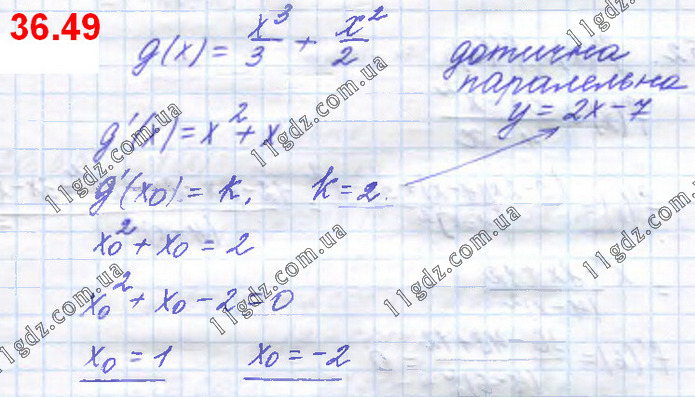 36.49
g(x) = x³/3 + x²/2
дотична
паралельна
y = 2x - 7
g'(x) = x² + x
g'(x₀) = k, k = 2.
x₀² + x₀ = 2
x₀² + x₀ - 2 = 0
x₀ = 1 x₀ = -2
11gdz.com.ua
11gdz.com.ua
11gdz.com.ua
11gdz.com.ua
11gdz.com.ua
11gdz.com.ua